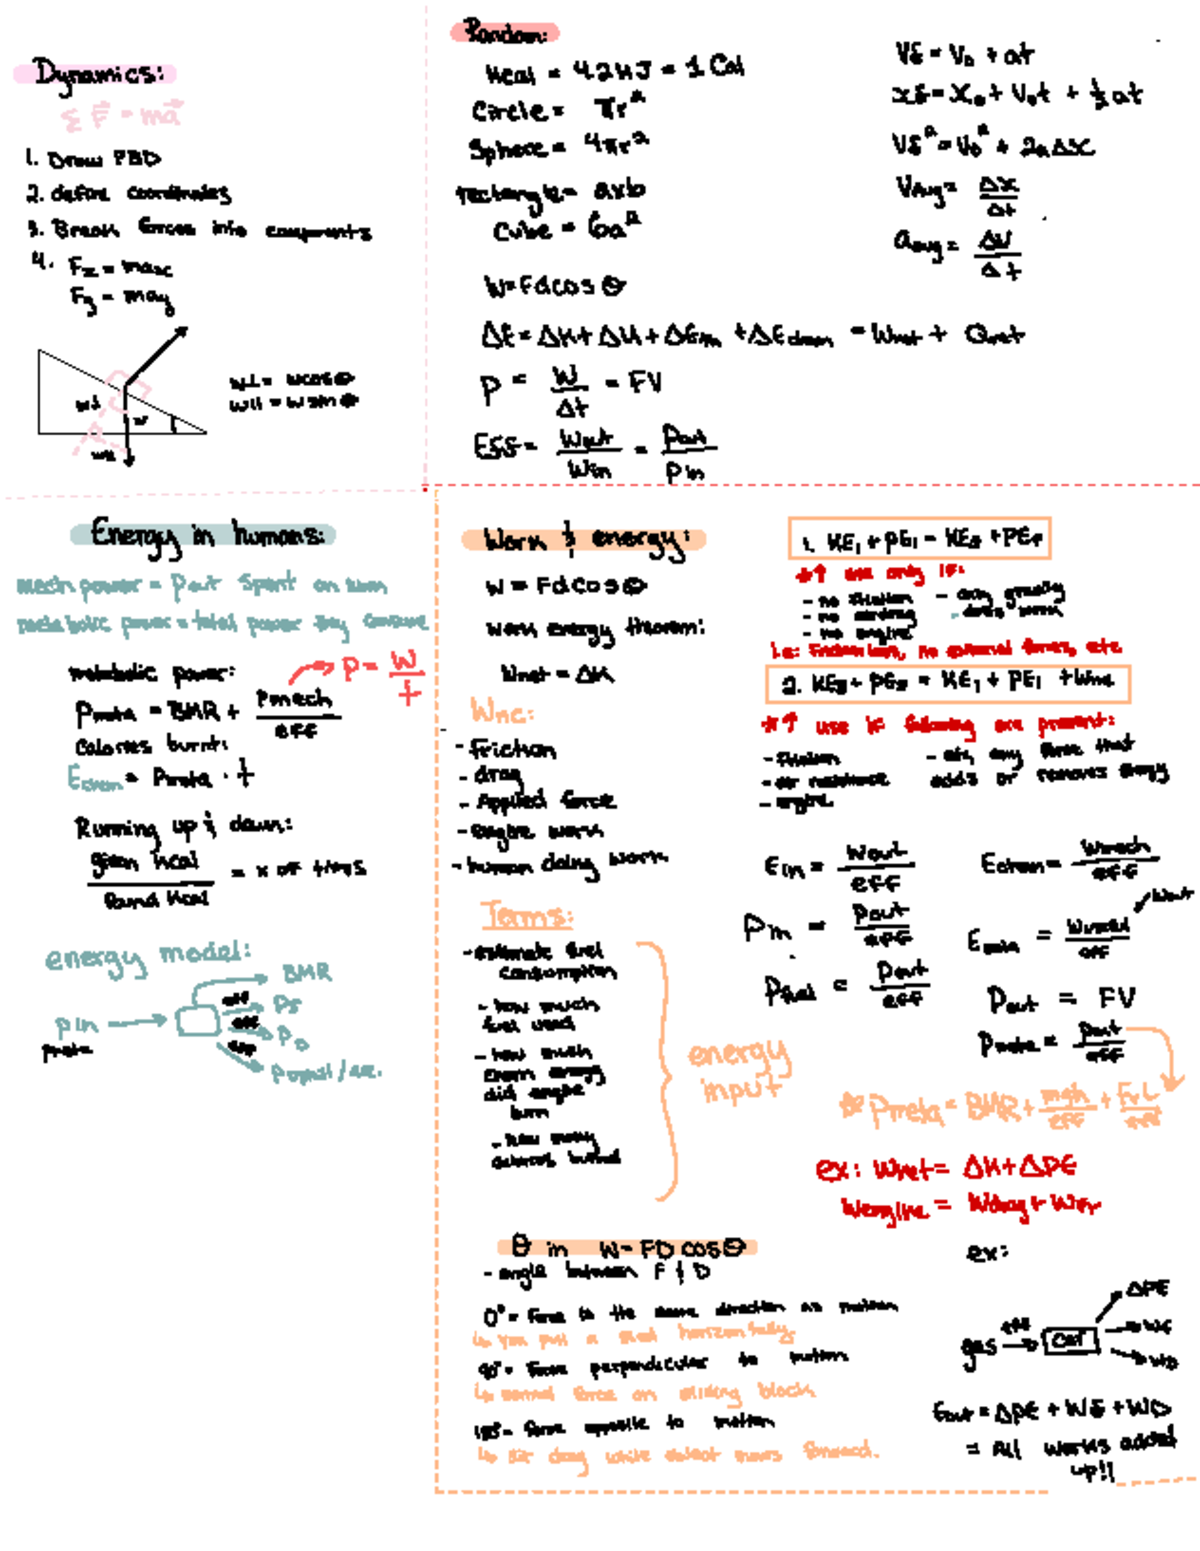 Dynamics:
Σ F = ma
1. Draw FBD
2. define coordinates
3. Break forces into components
4. Fx = max
Fy = may
W⊥ = wcosθ
W∥ = wsinθ
W⊥
W
W∥
Random:
Kcal = 4.2KJ = 1 Cal
Circle = πr²
Sphere = 4πr²
rectangle = axb
Cube = 6a²
W=Fdcosθ
ΔE = ΔK + ΔU + ΔEth + ΔEchem = Wnet + Qnet
P = W/Δt = FV
Eff = Wout/Win = Pout/Pin
Vf = V0 + at
xf = X0 + V0t + ½at
Vf² = V0² + 2aΔx
Vavg = Δx/Δt
aavg = ΔV/Δt
Energy in humans:
mech power = Pout spent on
metabolic power = total power
metabolic power:
→ P = W/t
Pmeta = BMR + Pmech/eff
Calories burnt:
Echem = Pmeta · t
Running up & down:
given kcal/found kcal = x of times
energy model:
BMR
Pin
Pmeta
eff
eff
eff
PD
Work & energy:
W = Fdcosθ
Work energy theorem:
Wnet = ΔK
Wnc:
- friction
- drag
- Applied force
- engine work
- human doing work
Terms:
- estimate fuel
consumption
- how much
fuel used
- how much
chem energy
did engine
burn
- how many
calories burned
energy
input
1. KE1 + PE1 = KE2 + PE2
*↑ use only if:
- no friction
- no airdrag
- no engine
- only gravity
does work
i.e: Frictionless, no external forces, etc
2. KE2 + PE2 = KE1 + PE1 + Wnc
*↑ use if following are present:
- friction
- air resistance
- engine
- etc, any force that
adds or removes energy
Ein = Wout/eff
Echem = Wmech/eff
Pin = Pout/eff
Wout
Pfuel = Pout/eff
Pout = FV
Pmeta = Pout/eff
* Pmeta = BMR + mgh/eff + FvL/eff
ex: Wnet = ΔK + ΔPE
Wengine = Wdrag + WFr
θ in W=FDcosθ
- angle between F & D
0° = force in the same direction as motion
↳ you pull a sled horizontally
90° = force perpendicular to motion
↳ normal force on sliding block
180° = force opposite to motion
↳ air drag while object moves forward.
ex:
ΔPE
gas eff → car → WF
WD
Eout = ΔPE + WF + WD
= All works added
up!!